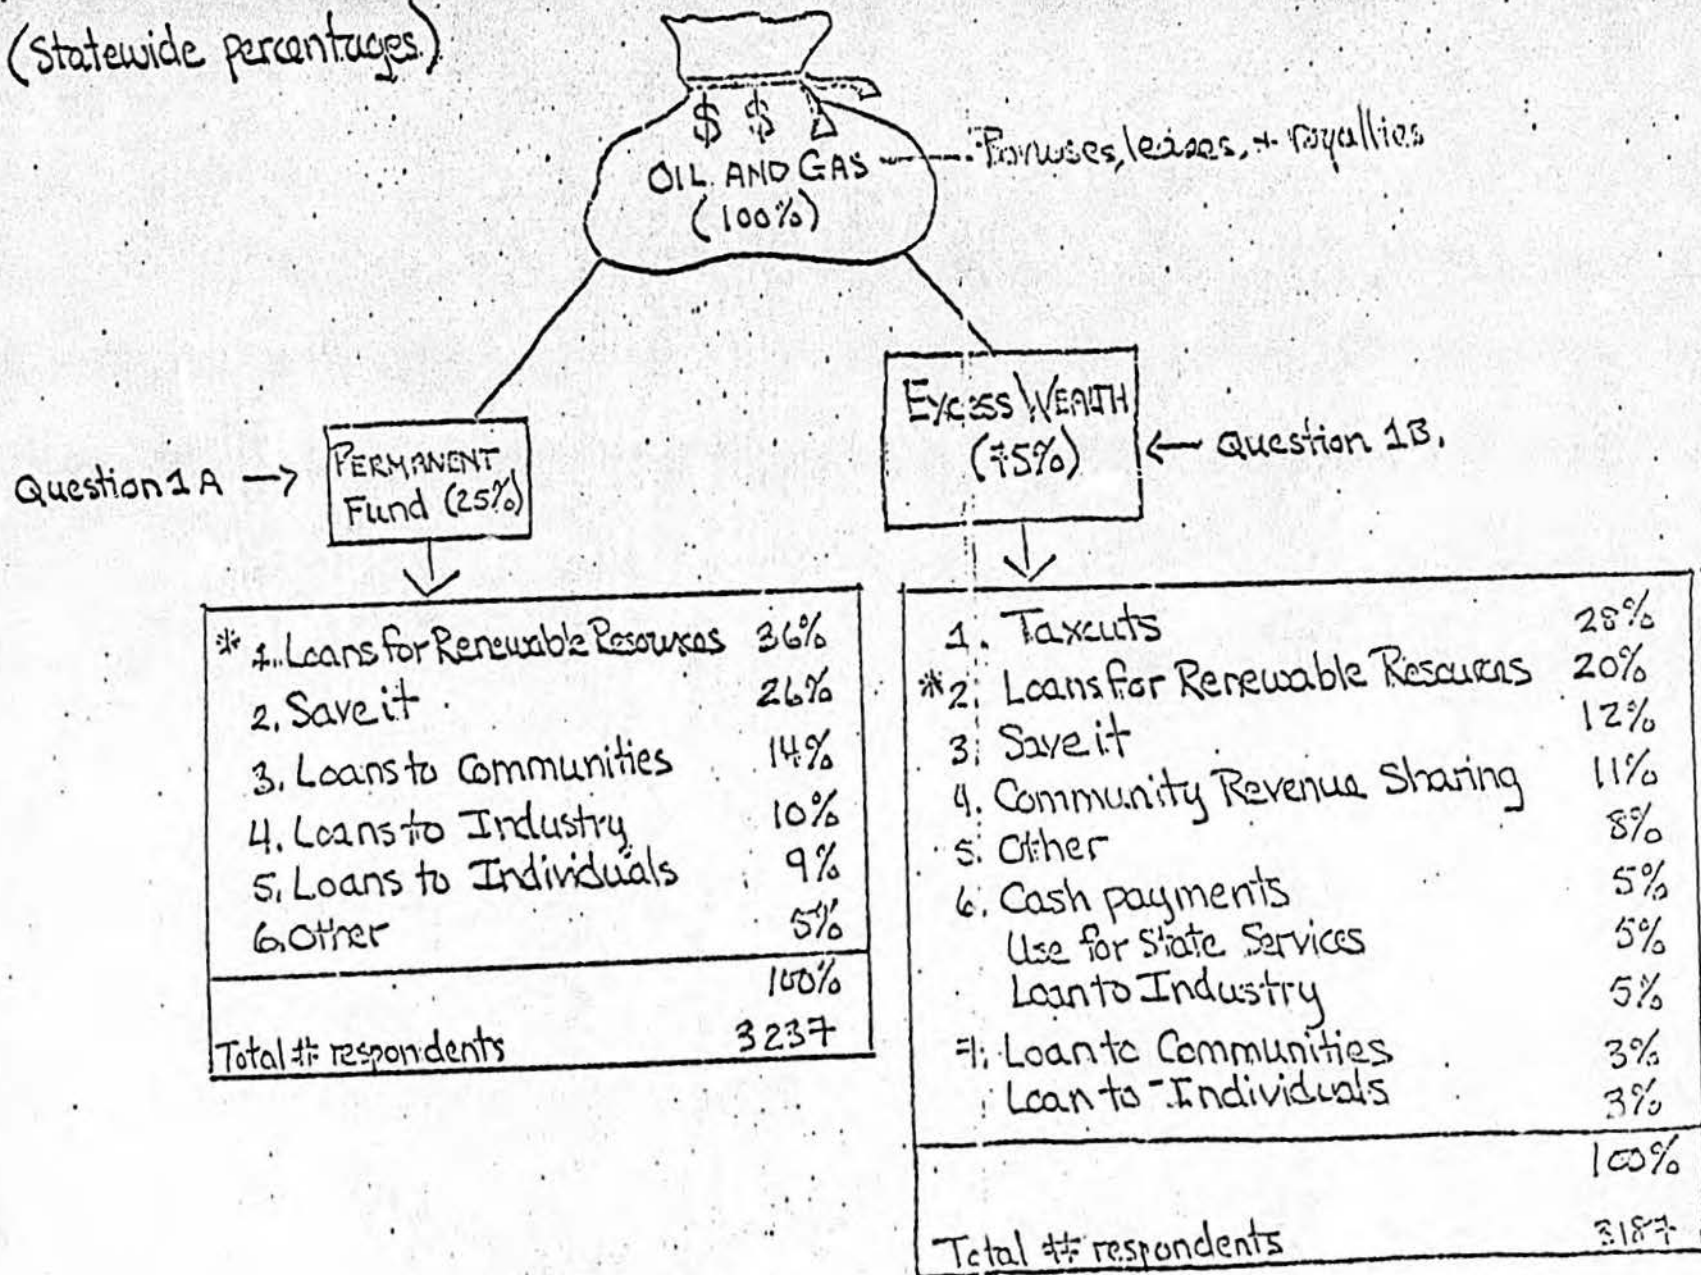 (Statewide percentages.)
$ $
OIL AND GAS
(100%)
Bonuses, leases, + royallies
Question 1A →
PERMANENT
Fund (25%)
EXCESS WEALTH
(75%)
← Question 1B.
* 1. Loans for Renewable Resources 36%
2. Save it 26%
3. Loans to Communities 14%
4. Loans to Industry 10%
5. Loans to Individuals 9%
6. Other 5%
100%
Total # respondents 3237
1. Taxcuts 28%
*2. Loans for Renewable Resources 20%
3. Save it 12%
4. Community Revenue Sharing 11%
5. Other 8%
6. Cash payments 5%
Use for State Services 5%
Loan to Industry 5%
7. Loan to Communities 3%
Loan to Individuals 3%
100%
Total # respondents 3187